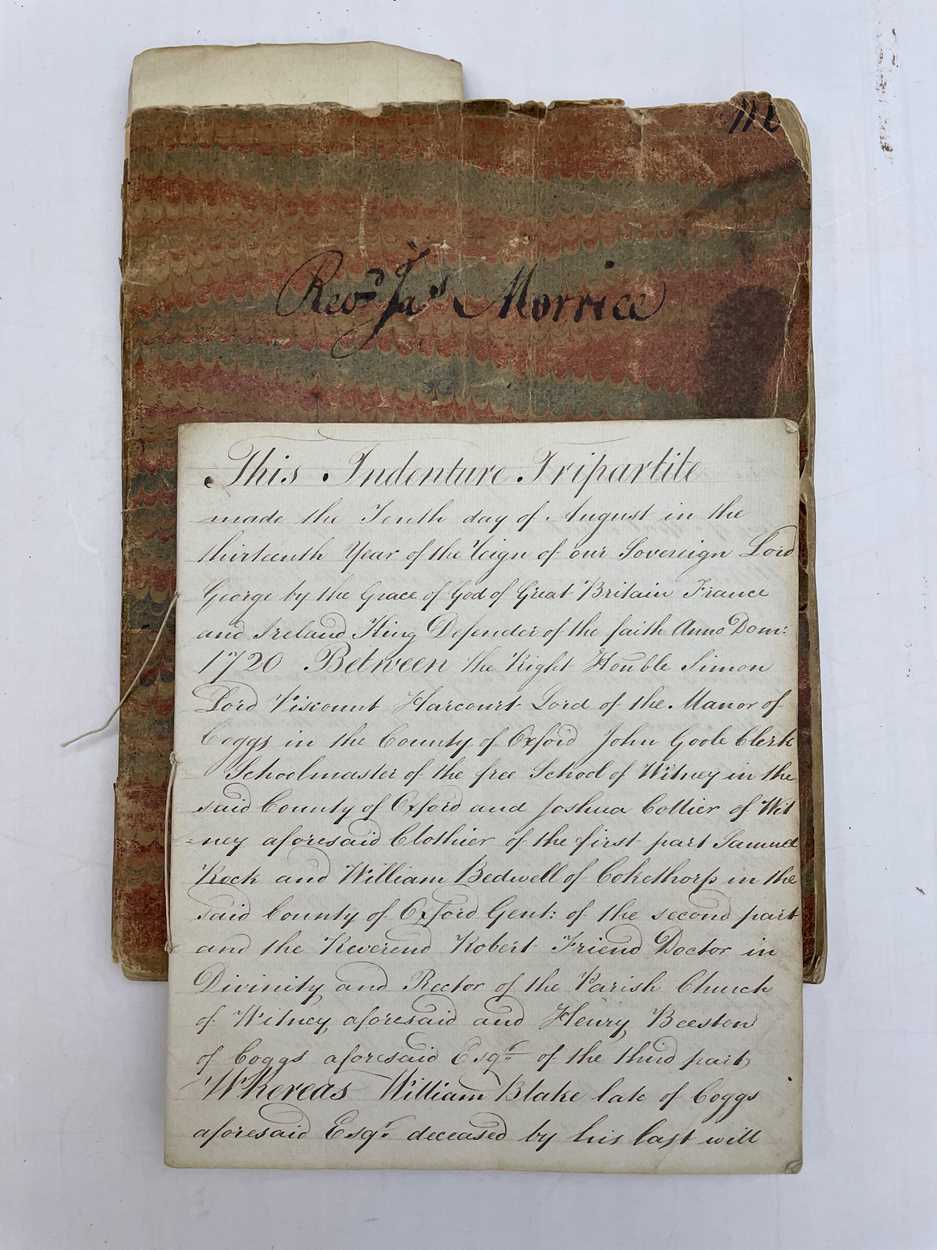 Revd Jas Morrice
This Indenture Tripartite
made the Tenth day of August in the
thirteenth Year of the Reign of our Sovereign Lord
George by the Grace of God of Great Britain France
and Ireland King Defender of the faith Anno Dom:
1720 Between the Right Honble Simon
Lord Viscount Harcourt Lord of the Manor of
Coggs in the County of Oxford John Goole Clerk
Schoolmaster of the free School of Witney in the
said County of Oxford and Joshua Collier of Wit
ney aforesaid Clothier of the first part Samuel
Rock and William Bedwell of Cokethorp in the
said County of Oxford Gent: of the second part
and the Reverend Robert Friend Doctor in
Divinity and Rector of the Parish Church
of Witney aforesaid and Henry Beeston
of Coggs aforesaid Esqr of the third part
Whereas William Blake late of Coggs
aforesaid Esqr deceased by his last will